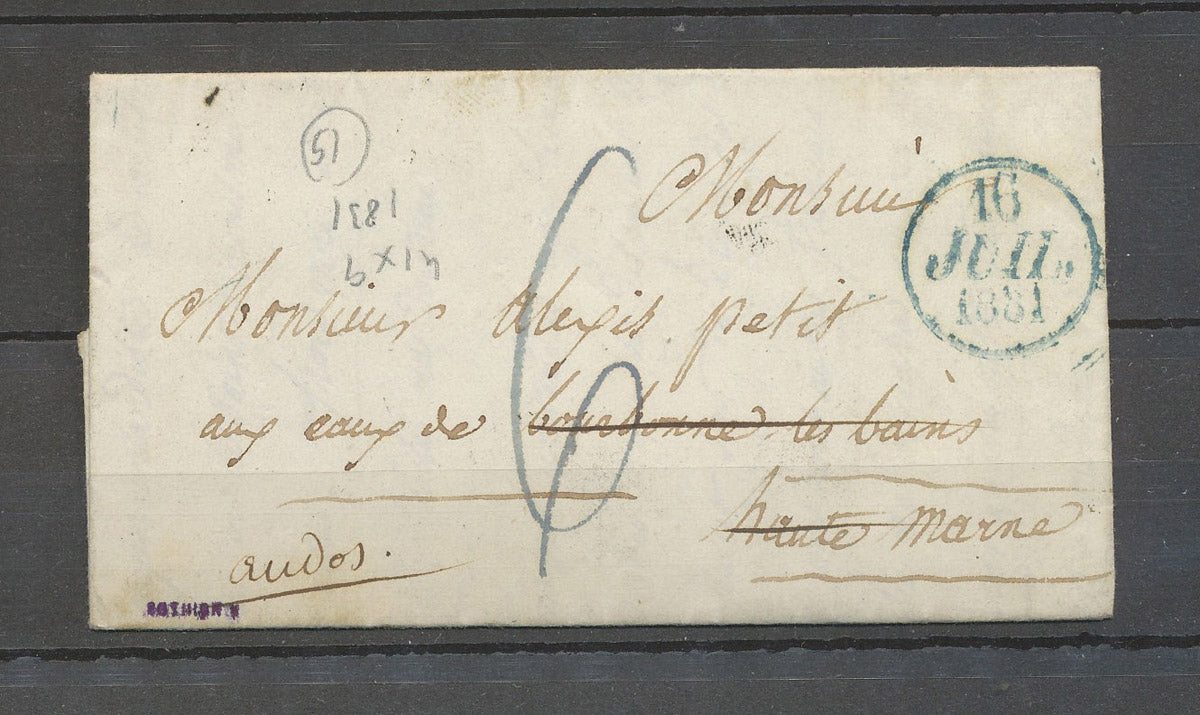 51
1831
Monsieur
16
JUIL.
1831
6
Monsieur Alexis petit
aux eaux de bourbonne les bains
haute Marne
audos.